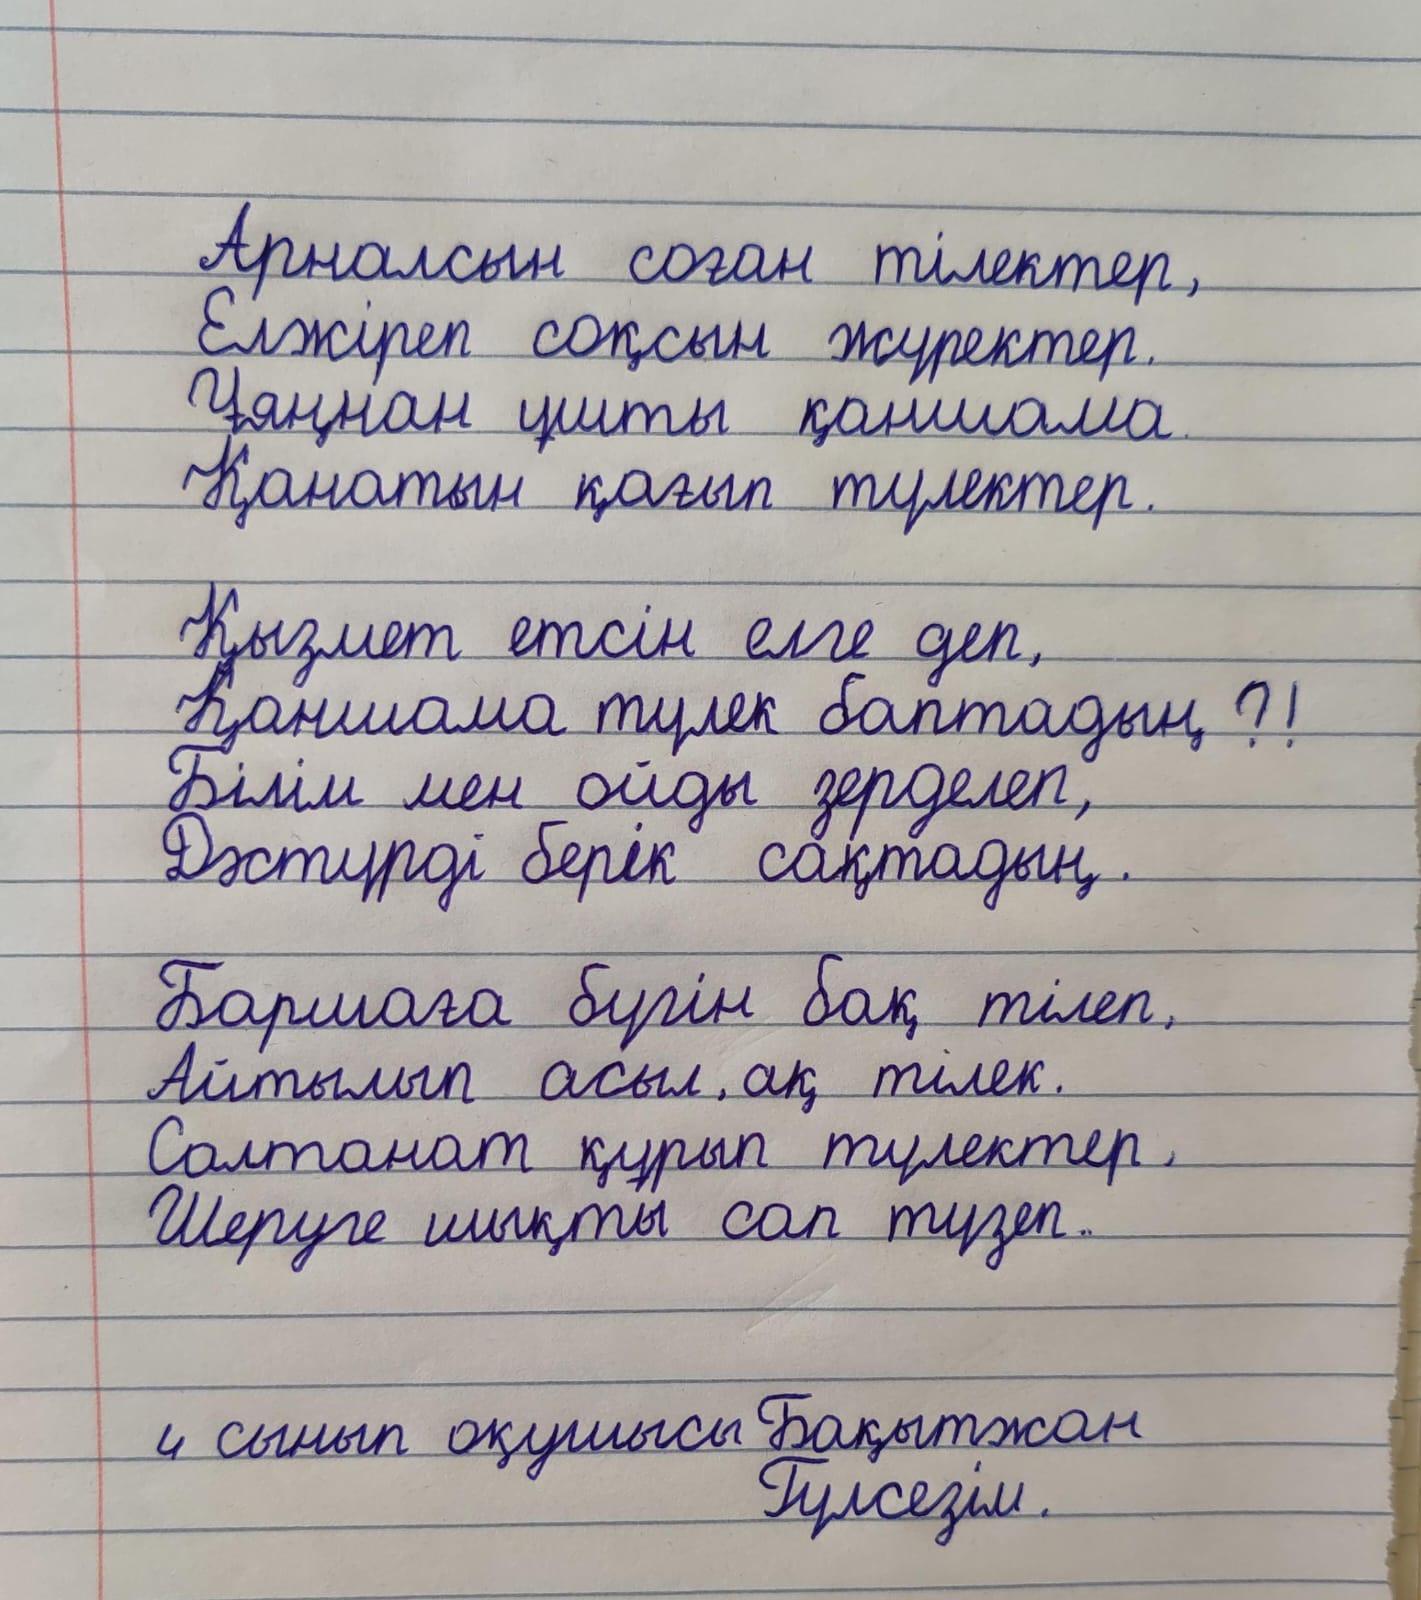 Арналсын соған тілектер,
Елжіреп соқсын жүректер.
Ұяңнан ұшты қаншама
Қанатын қағып түлектер.
Қызмет етсін елге деп,
Қаншама түлек баптадың ?!
Білім мен ойды зерделеп,
Дәстүрді берік сақтадың.
Баршаға бүгін бақ тілеп,
Айтылып асыл, ақ тілек.
Салтанат құрып түлектер,
Шеруге шықты сап түзеп..
4 сынып оқушысы Бақытжан
Гүлсезім.